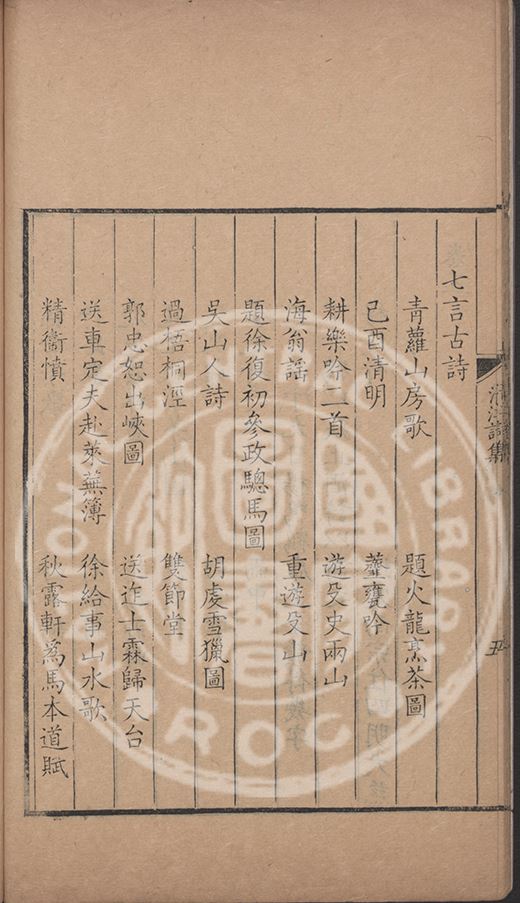 七言古詩
青蘿山房歌 題火龍烹茶圖
己酉清明 虀甕吟
耕樂吟二首 遊殳史兩山
海翁謠 重遊殳山
題徐復初參政驄馬圖
吳山人詩 胡虔雪獵圖
過梧桐涇 雙節堂
郭忠恕出峽圖 送進士霖歸天台
送車定夫赴萊蕪簿 徐給事山水歌
精衞憤 秋露軒為馬本道賦
詩集
五